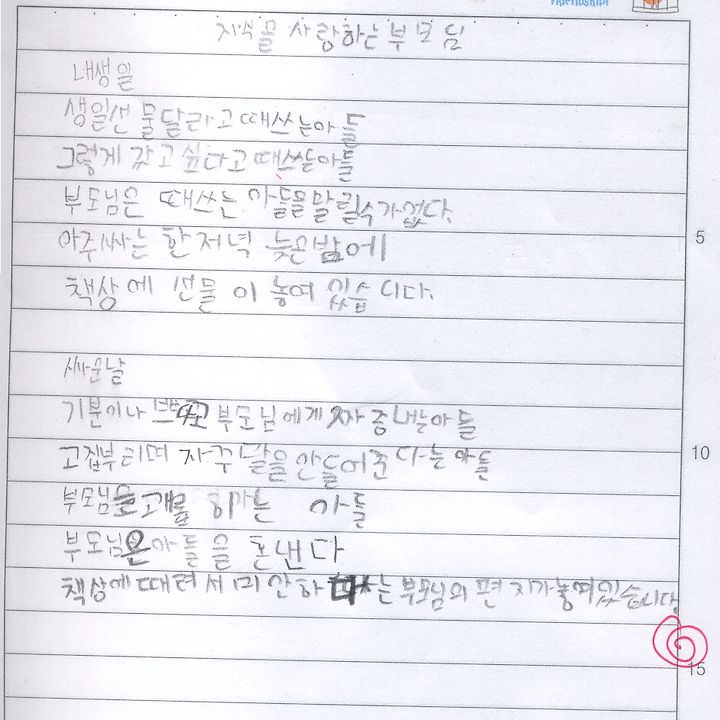 FRIENDSHIP!
지식을 사랑하는 부모님
내생일
생일선물달라고 때쓰는아들
그렇게 갖고싶다고 때쓰는아들
부모님은 때쓰는 아들을말릴수가없다.
아주싸는 한저녁 늦은밤에
책상에 선물이 놓여 있습니다.
5
싸운날
기분이나 쁘다고 부모님에게 짜증내는아들
고집부리며 자꾸 말을 안들어준다는 아들
10
부모님 아들
부모님은아들을 혼낸다
책상에 때려서 미안하다는 부모님의 편지가놓여있습니다
15